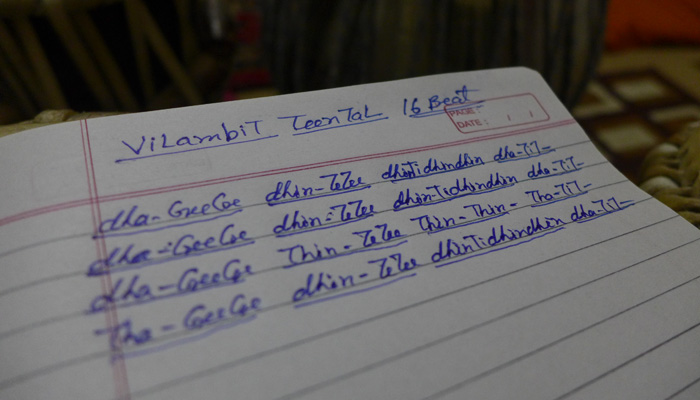 Vilambit Teental 16 Beat
PAGE:
DATE: / /
dha-GeeGee dhin-TeTee dhinTidhindhin dha-TiT-
dha-GeeGee dhin-TeTee dhin-Tidhindhin dha-TiT-
dha-GeeGee Thin-TeTee Thin-Thin- Tha-TiT-
Tha-GeeGee dhin-TeTee dhinTidhindhin dha-TiT-